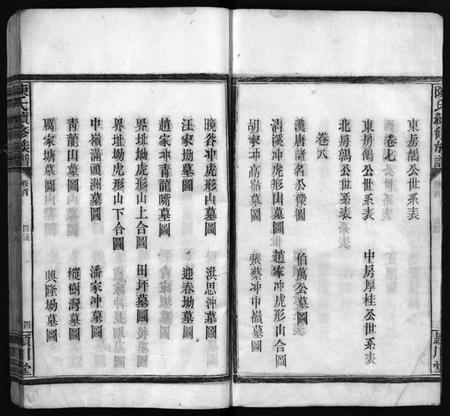 陳氏續修族譜
東房鶚公世系表
卷七
東房鶴公世系表 中房厚桂公世系表
北房鶚公世系表
卷八
漢唐諸名公像圖 伯萬公墓圖
清溪冲虎形山墓圖 趙家冲虎形山合圖
胡家冲高嶺墓圖 張蔡冲中嶺墓圖
潁川堂
晚谷冲虎形山墓圖 洪思沖墓圖
汪家坳墓圖 迎春坳墓圖
趙家冲青龍嘴墓圖
界址坳虎形山上合圖 田坪墓圖
界址坳虎形山下合圖
中嶺滿頭洲墓圖 潘家冲墓圖
青龍山墓圖 樹灣墓圖
厲家塘墓圖 興隆坳墓圖
陳氏續修族譜
卷首
目錄
四
潁川堂